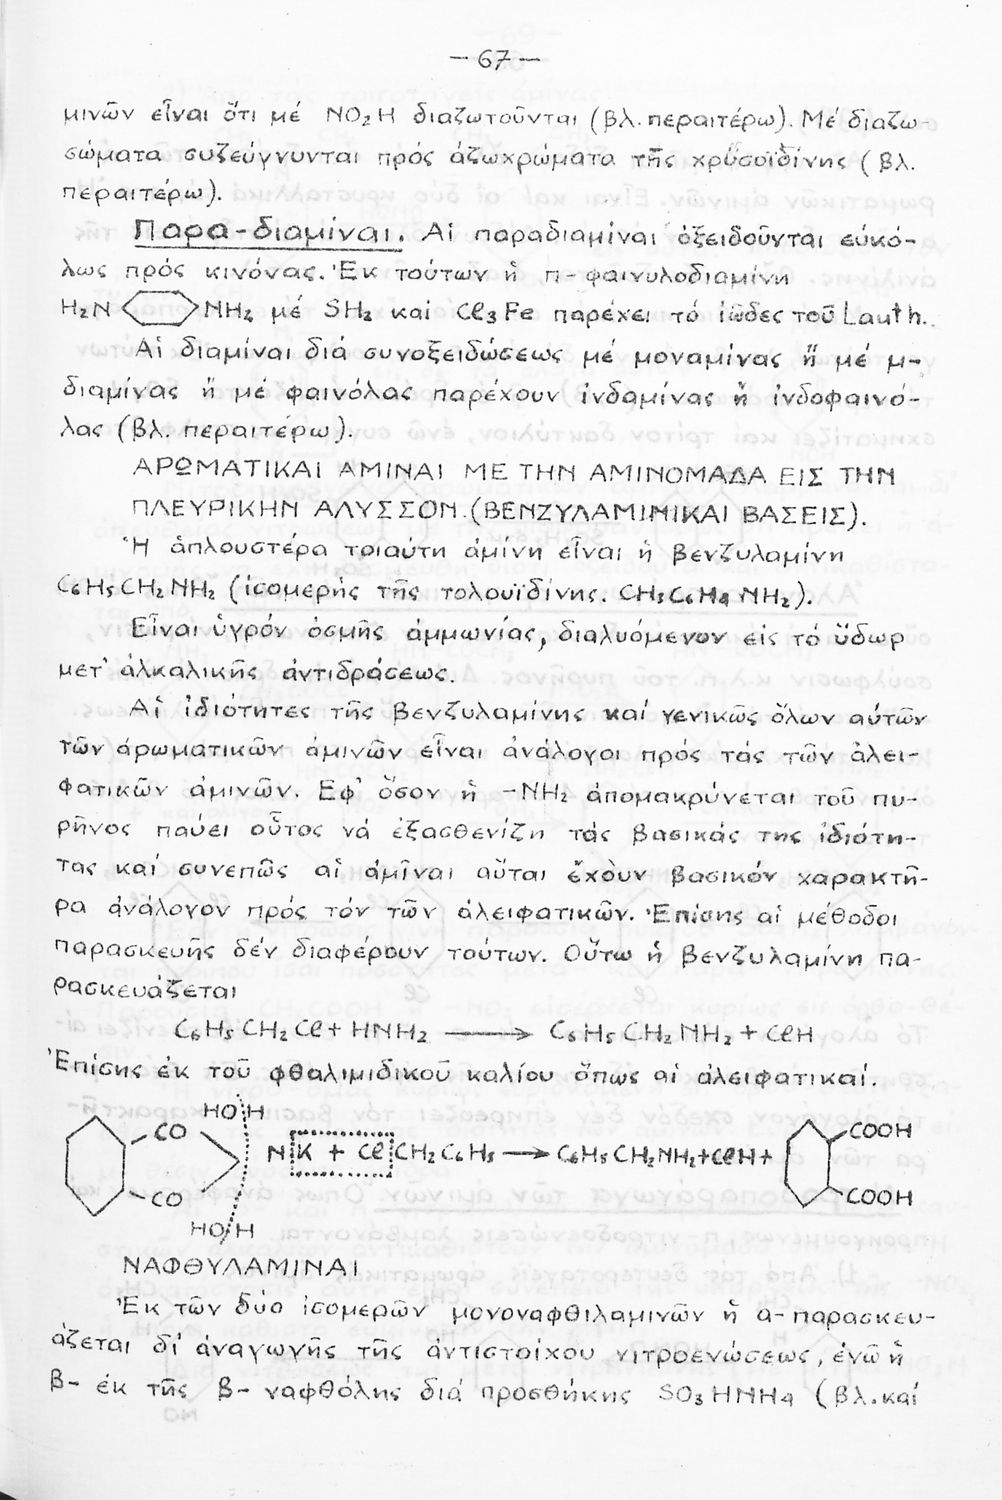 — 67 —
μινῶν εἶναι ὅτι μέ NO₂H διαζωτοῦνται (βλ. περαιτέρω). Μέ διαζω-
σώματα συζεύγνυνται πρός ἀζωχρώματα τῆς χρυσοϊδίνης (βλ.
περαιτέρω).
Παρα-διαμίναι. Αἱ παραδιαμίναι ὀξειδοῦνται εὐκό-
λως πρός κινόνας. Ἐκ τούτων ἡ π-φαινυλοδιαμίνη
H₂N NH₂ μέ SH₂ καί Cl₃Fe παρέχει τό ἰῶδες τοῦ Lauth.
Αἱ διαμίναι διά συνοξειδώσεως μέ μοναμίνας ἤ μέ μ-
διαμίνας ἤ μέ φαινόλας παρέχουν ἰνδαμίνας ἤ ἰνδοφαινό-
λας (βλ. περαιτέρω).
ΑΡΩΜΑΤΙΚΑΙ ΑΜΙΝΑΙ ΜΕ ΤΗΝ ΑΜΙΝΟΜΑΔΑ ΕΙΣ ΤΗΝ
ΠΛΕΥΡΙΚΗΝ ΑΛΥΣΣΟΝ.(ΒΕΝΖΥΛΑΜΙΝΙΚΑΙ ΒΑΣΕΙΣ).
Ἡ ἁπλουστέρα τοιαύτη ἀμίνη εἶναι ἡ βενζυλαμίνη
C₆H₅CH₂NH₂ (ἰσομερής τῆς τολουϊδίνης. CH₃C₆H₄NH₂).
Εἶναι ὑγρόν ὀσμῆς ἀμμωνίας, διαλυόμενον εἰς τό ὕδωρ
μετ' ἀλκαλικῆς ἀντιδράσεως.
Αἱ ἰδιότητες τῆς βενζυλαμίνης καί γενικῶς ὅλων αὐτῶν
τῶν ἀρωματικῶν ἀμινῶν εἶναι ἀνάλογοι πρός τάς τῶν ἀλει-
φατικῶν ἀμινῶν. Ἐφ' ὅσον ἡ -NH₂ ἀπομακρύνεται τοῦ πυ-
ρῆνος παύει οὗτος νά ἐξασθενίζη τάς βασικάς της ἰδιότη-
τας καί συνεπῶς αἱ ἀμῖναι αὗται ἔχουν βασικόν χαρακτῆ-
ρα ἀνάλογον πρός τόν τῶν ἀλειφατικῶν. Ἐπίσης αἱ μέθοδοι
παρασκευῆς δέν διαφέρουν τούτων. Οὕτω ἡ βενζυλαμίνη πα-
ρασκευάζεται
C₆H₅CH₂Cl + HNH₂ ⟶ C₆H₅CH₂NH₂ + ClH
Ἐπίσης ἐκ τοῦ φθαλιμιδικοῦ καλίου ὅπως αἱ ἀλειφατικαί.
HO H
CO COOH
N K + Cl CH₂C₆H₅ ⟶ C₆H₅CH₂NH₂+ClH+
CO COOH
HO H
ΝΑΦΘΥΛΑΜΙΝΑΙ
Ἐκ τῶν δύο ἰσομερῶν μονοναφθιλαμινῶν ἡ α-παρασκευ-
άζεται δι' ἀναγωγῆς τῆς ἀντιστοίχου νιτροενώσεως, ἐνῶ ἡ
β- ἐκ τῆς β- ναφθόλης διά προσθήκης SO₃HNH₄ (βλ. καί